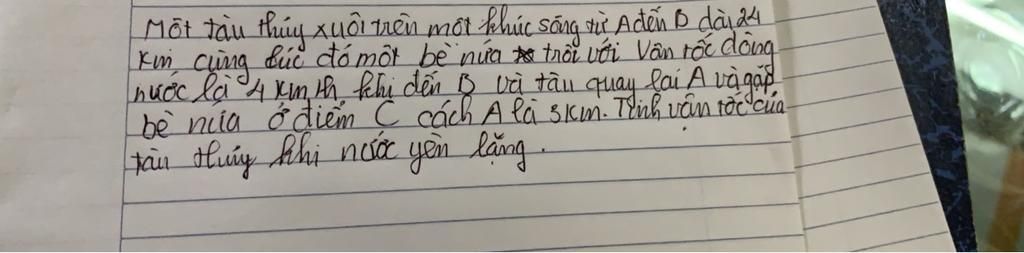 Một tàu thủy xuôi trên một khúc sông từ A đến B dài 24
km cùng lúc đó một bè nứa trôi với vân tốc dòng
nước là 4 km/h khi đến B và tàu quay lai A và gặp
bè nứa ở điểm C cách A là 8km. Tính vận tốc của
tàu thủy khi nước yên lặng.